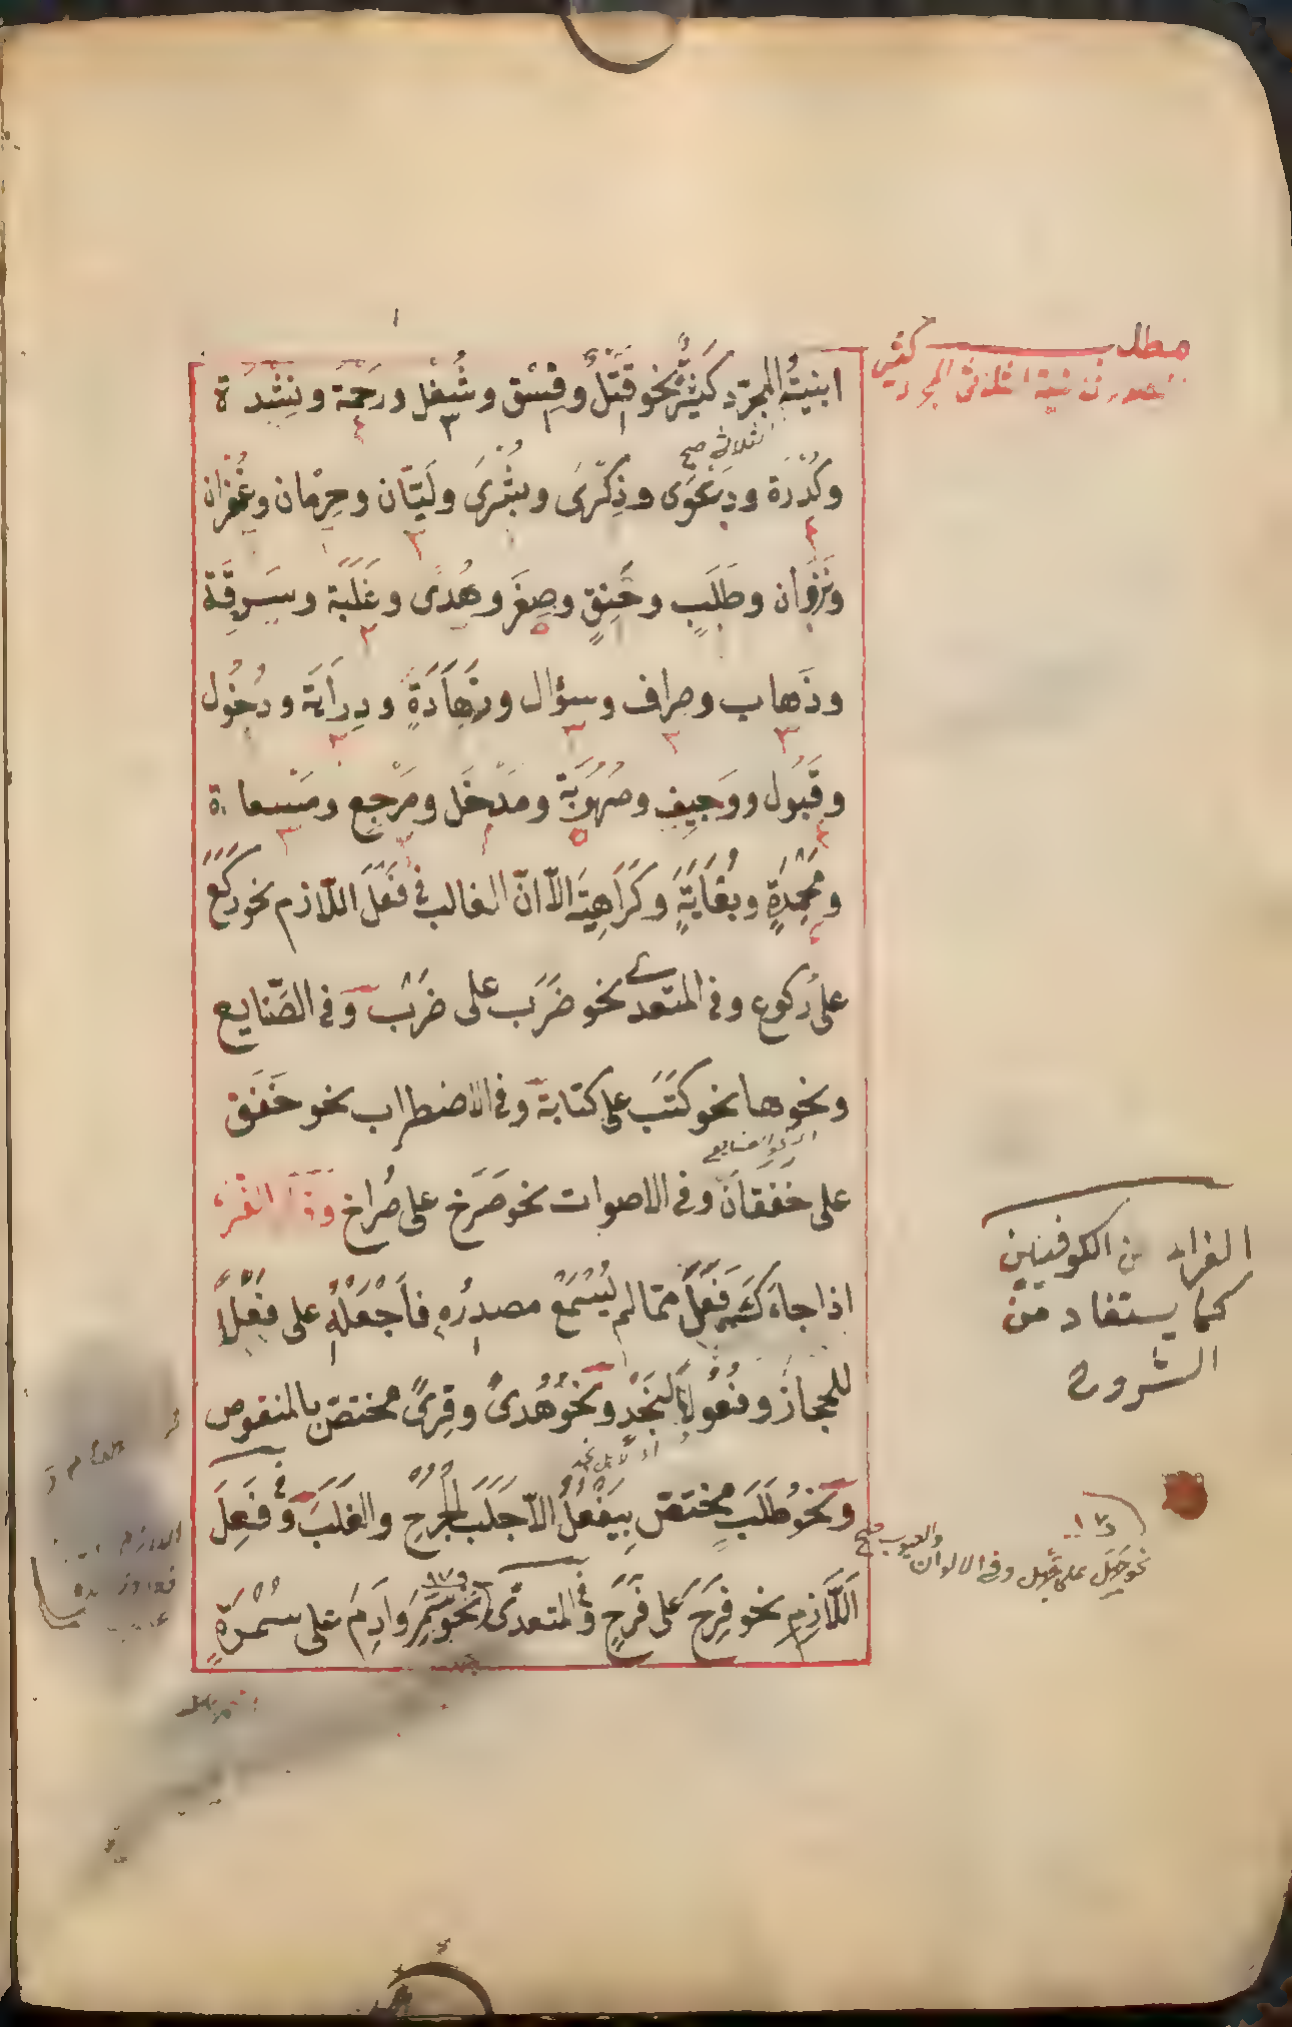 مطلب كثير
ابنيةُ المجرّد كَثِيْرٌ نحو قَتْلٌ وفِسْق وشُغْل ورَحْمَة ونِشْدَة
الثلاثي صح
وكُدْرَة ودَعْوَى وذِكْرَى وبُشْرَى ولَيَّان وحِرْمان وغُفْران
ونَزَوَان وطَلَبٍ وخَنِقٍ وصِغَر وهُدًى وغَلَبَة وسَرِقَة
وذَهاب وصراف وسؤال وزَهَادَةٍ ودِرَايَة ودُخُول
وقَبُول ووَجِيف وصُهُوبَة ومَدْخَل ومَرْجِع ومَسْعاة
ومَحْمِدَةٍ وبُغَايَةٍ وكَرَاهِيَة الّا انّ الغالب في فَعَلَ اللّازم نحو رَكَعَ
على رُكوع وفي المتعدي نحو ضَرَب على ضَرْب وفي الصَّنايع
ونحوها نحو كَتَبَ على كتابة وفي الاضطراب نحو خَفَقَ
على خَفَقَانَ وفي الاصوات نحو صَرَخ على صُراخ وقال الفرّاء
اذا جاءَ كَ فَعَلَ ممّا لم يُسْمَعْ مصدرُه فاَجْعَلْهُ على فَعْلاً
للحجاز وفُعُولاً لِنَجْدٍ ونحْوُ هُدىً وقِرىً مختصّ بالمنقوص
ونحْوُ طَلَبٍ مختصّ بِيَفْعُلُ الّا جَلَبَ الجُرْحِ والغَلَبَ وفي فَعِلَ
اَللَّازِمِ نحو فَرِحَ على فَرَحٍ وفي المتعدّى نَحْوُ سَمِرَ وَاَدِمَ على سُمْرَةٍ
الفراء من الكوفيين
كما يستفاد من
الشروح
نحو جَهِلَ على جَهْل وفي الالوان والعيوب صح